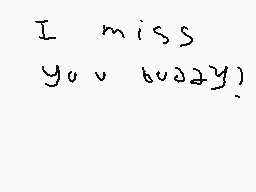 I miss
you buddy?